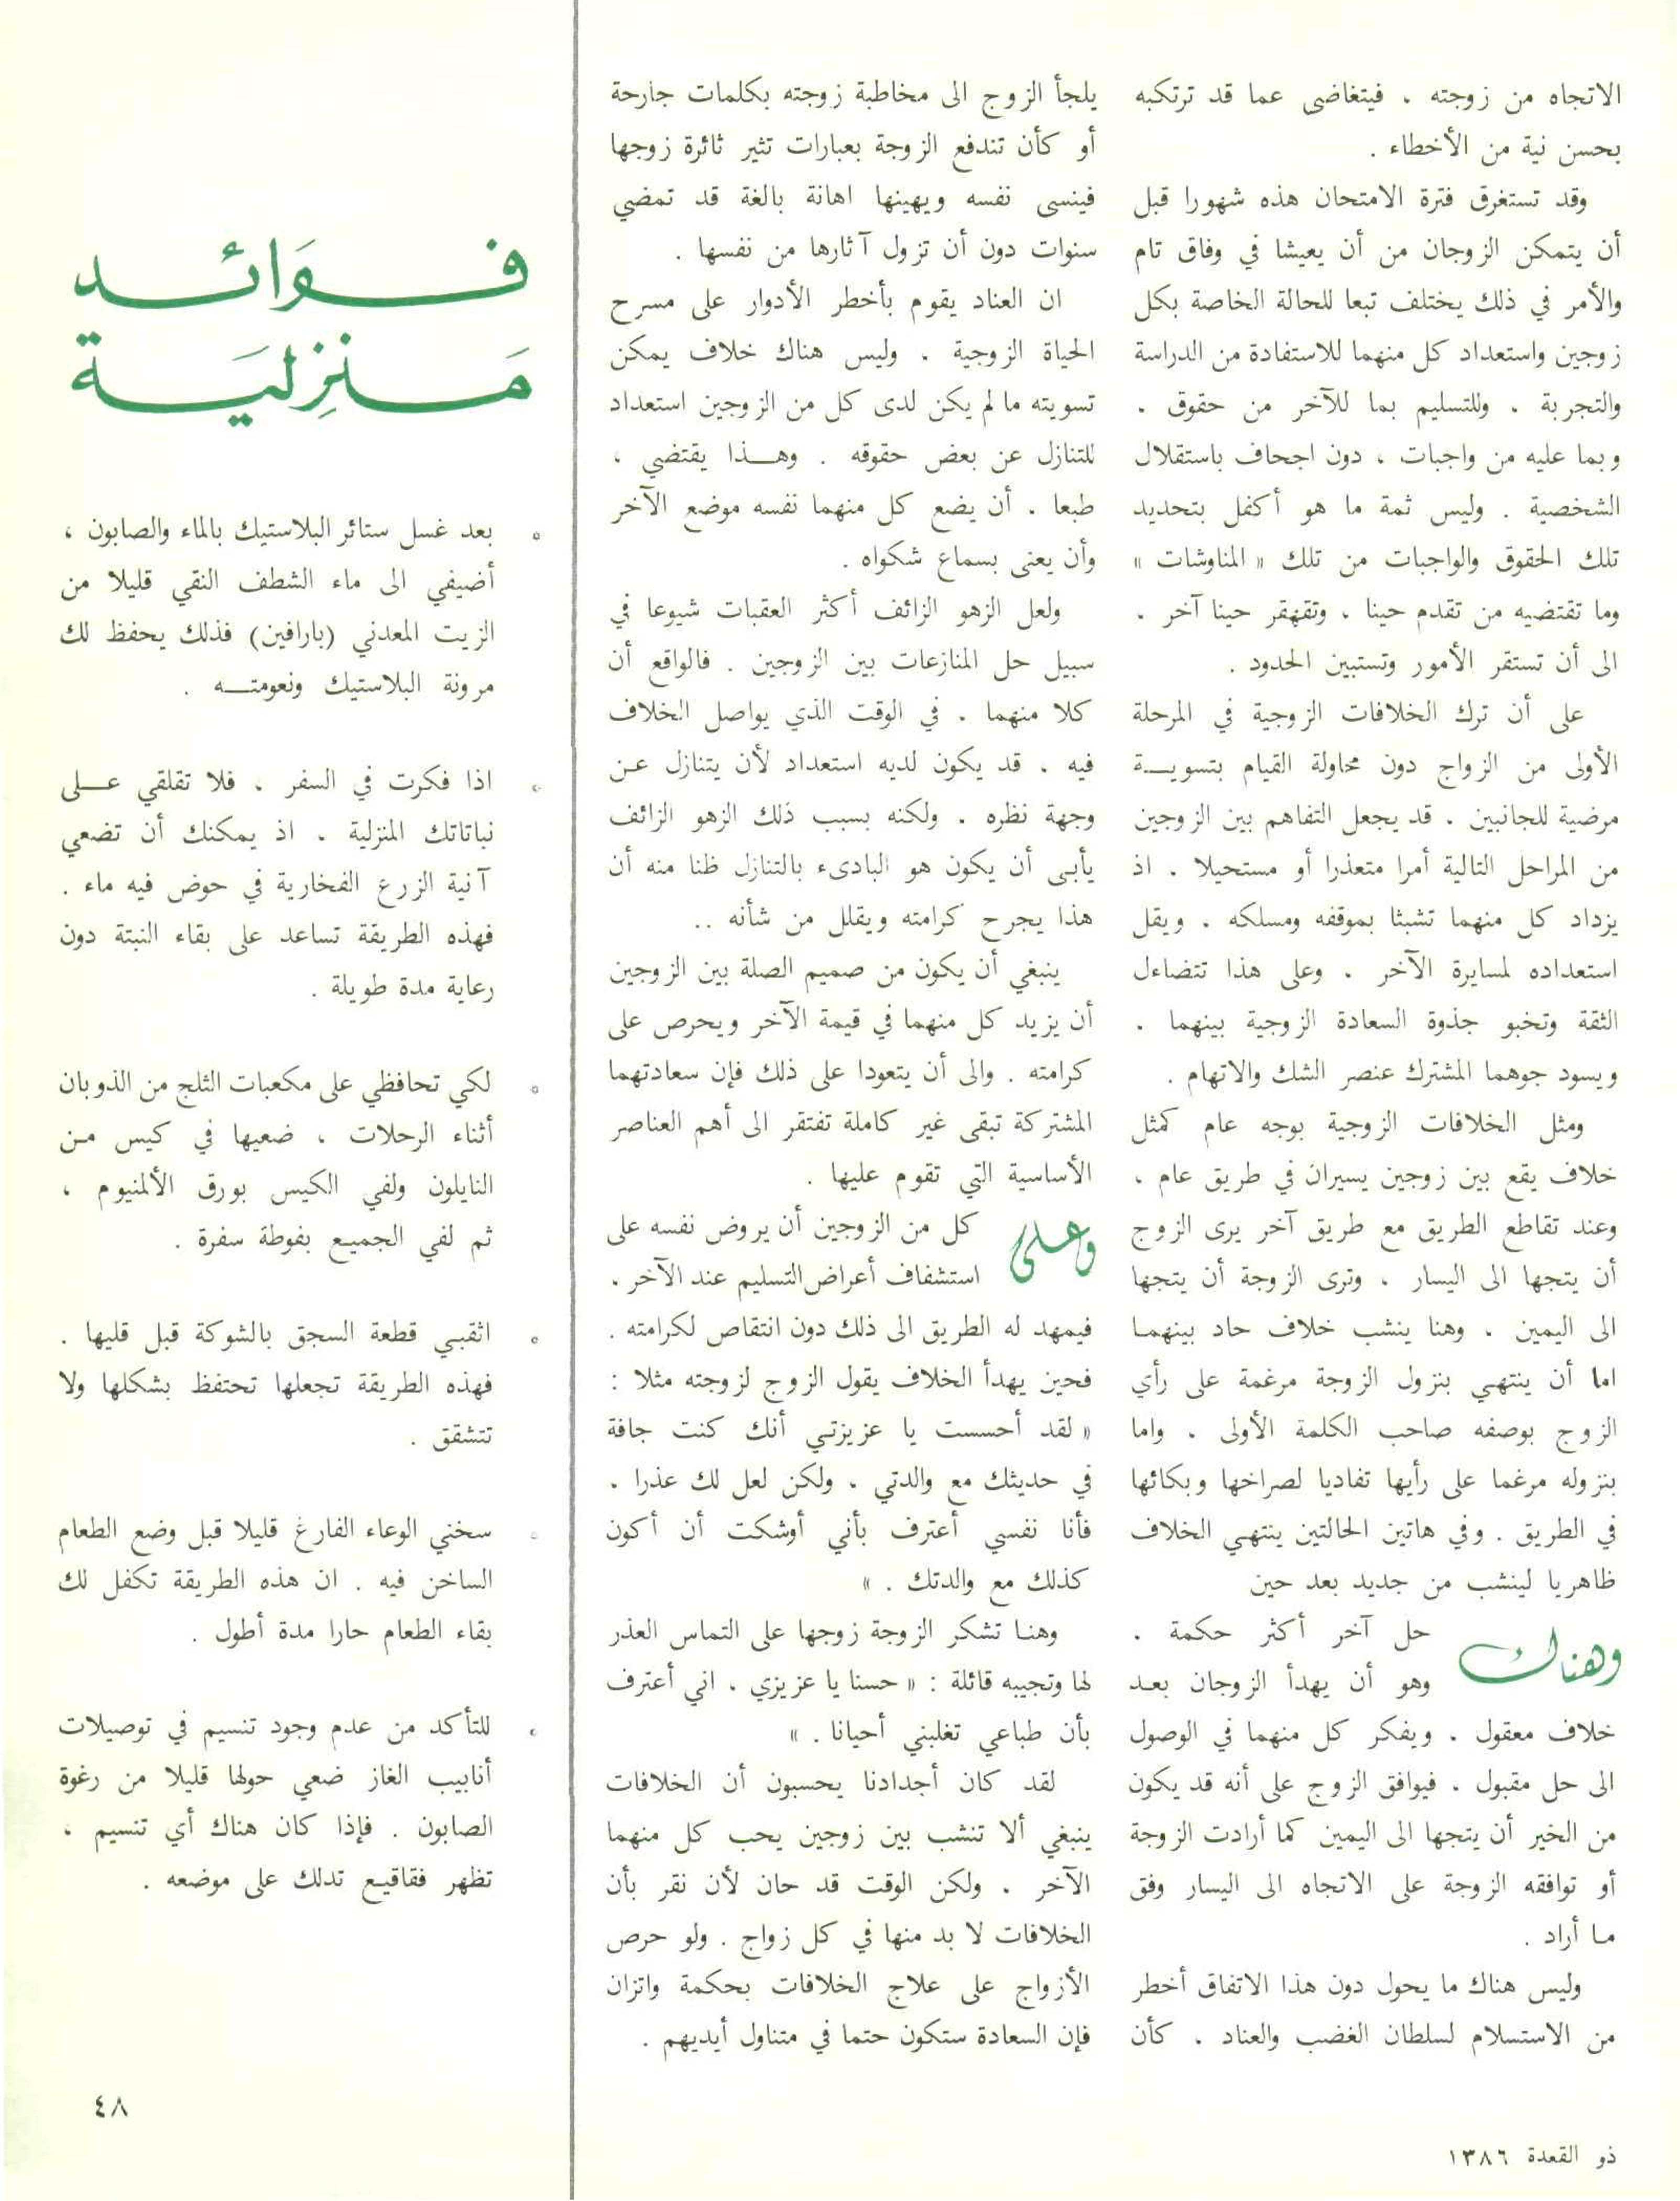 الاتجاه من زوجته ، فيتغاضى عما قد ترتكبه
بحسن نية من الأخطاء .
وقد تستغرق فترة الامتحان هذه شهورا قبل
أن يتمكن الزوجان من أن يعيشا في وفاق تام
والأمر في ذلك يختلف تبعا للحالة الخاصة بكل
زوجين واستعداد كل منهما للاستفادة من الدراسة
والتجربة ، وللتسليم بما للآخر من حقوق ،
وبما عليه من واجبات ، دون اجحاف باستقلال
الشخصية . وليس ثمة ما هو أكفل بتحديد
تلك الحقوق والواجبات من تلك « المناوشات »
وما تقتضيه من تقدم حينا ، وتقهقر حينا آخر ،
الى أن تستقر الأمور وتستبين الحدود .
على أن ترك الخلافات الزوجية في المرحلة
الأولى من الزواج دون محاولة القيام بتسويـــة
مرضية للجانبين ، قد يجعل التفاهم بين الزوجين
من المراحل التالية أمرا متعذرا أو مستحيلا ، اذ
يزداد كل منهما تشبثا بموقفه ومسلكه ، ويقل
استعداده لمسايرة الآخر ، وعلى هذا تتضاءل
الثقة وتخبو جذوة السعادة الزوجية بينهما ،
ويسود جوهما المشترك عنصر الشك والاتهام .
ومثل الخلافات الزوجية بوجه عام كمثل
خلاف يقع بين زوجين يسيران في طريق عام ،
وعند تقاطع الطريق مع طريق آخر يرى الزوج
أن يتجها الى اليسار ، وترى الزوجة أن يتجها
الى اليمين ، وهنا ينشب خلاف حاد بينهمـا
اما أن ينتهي بنزول الزوجة مرغمة على رأي
الزوج بوصفه صاحب الكلمة الأولى ، واما
بنزوله مرغما على رأيها تفاديا لصراخها وبكائها
في الطريق . وفي هاتين الحالتين ينتهـي الخلاف
ظاهريا لينشب من جديد بعد حين
وهناك حل آخر أكثر حكمة ،
وهو أن يهدأ الزوجان بعـد
خلاف معقول ، ويفكر كل منهما في الوصول
الى حل مقبول ، فيوافق الزوج على أنه قد يكون
من الخير أن يتجها الى اليمين كما أرادت الزوجة
أو توافقه الزوجة على الاتجاه الى اليسار وفق
مـا أراد .
وليس هناك ما يحول دون هذا الاتفاق أخطر
من الاستسلام لسلطان الغضب والعناد ، كأن
يلجأ الزوج الى مخاطبة زوجته بكلمات جارحة
أو كأن تندفع الزوجة بعبارات تثير ثائرة زوجها
فينسى نفسه ويهينها اهانة بالغة قد تمضي
سنوات دون أن تزول آثارها من نفسها .
ان العناد يقوم بأخطر الأدوار على مسرح
الحياة الزوجية ، وليس هناك خلاف يمكن
تسويته ما لم يكن لدى كل من الزوجين استعداد
للتنازل عن بعض حقوقه . وهـــذا يقتضي ،
طبعا ، أن يضع كل منهما نفسه موضع الآخر
وأن يعنى بسماع شكواه .
ولعل الزهو الزائف أكثر العقبات شيوعا في
سبيل حل المنازعات بين الزوجين . فالواقع أن
كلا منهما ، في الوقت الذي يواصل الخلاف
فيه ، قد يكون لديه استعداد لأن يتنازل عـن
وجهة نظره ، ولكنه بسبب ذلك الزهو الزائف
يأبـى أن يكون هو البادىء بالتنازل ظنا منه أن
هذا يجرح كرامته ويقلل من شأنه ..
ينبغي أن يكون من صميم الصلة بين الزوجين
أن يزيد كل منهما في قيمة الآخر ويحرص على
كرامته . والى أن يتعودا على ذلك فإن سعادتهما
المشتركة تبقى غير كاملة تفتقر الى أهم العناصر
الأساسية التي تقوم عليها .
وعلى كل من الزوجين أن يروض نفسه على
استشفاف أعراض التسليم عند الآخر ،
فيمهد له الطريق الى ذلك دون انتقاص لكرامته .
فحين يهدأ الخلاف يقول الزوج لزوجته مثلا :
« لقد أحسست يا عزيزتـي أنك كنت جافة
في حديثك مع والدتي ، ولكن لعل لك عذرا ،
فأنا نفسي أعترف بأني أوشكت أن أكون
كذلك مع والدتك . »
وهنـا تشكر الزوجة زوجها على التماس العذر
لها وتجيبه قائلة : « حسنا يا عزيزي ، اني أعترف
بأن طباعي تغلبني أحيانا . »
لقد كان أجدادنا يحسبون أن الخلافات
ينبغي ألا تنشب بين زوجين يحب كل منهما
الآخر ، ولكن الوقت قد حان لأن نقر بأن
الخلافات لا بد منها في كل زواج . ولو حرص
الأزواج على علاج الخلافات بحكمة واتزان
فإن السعادة ستكون حتما في متناول أيديهم .
فــوَائــد
مَــنزِليَــة
° بعد غسل ستائر البلاستيك بالماء والصابون ،
أضيفي الى ماء الشطف النقي قليلا من
الزيت المعدني (بارافين) فذلك يحفظ لك
مرونة البلاستيك ونعومتـــه .
° اذا فكرت في السفر ، فلا تقلقي عـــلى
نباتاتك المنزلية ، اذ يمكنك أن تضعي
آنية الزرع الفخارية في حوض فيه ماء .
فهذه الطريقة تساعد على بقاء النبتة دون
رعاية مدة طويلة .
° لكي تحافظي على مكعبات الثلج من الذوبان
أثناء الرحلات ، ضعيها في كيس مـن
النايلون ولفي الكيس بورق الألمنيوم ،
ثم لفي الجميـع بفوطة سفرة .
° اثقبـي قطعة السجق بالشوكة قبل قليها .
فهذه الطريقة تجعلها تحتفظ بشكلها ولا
تتشقق .
° سخني الوعاء الفارغ قليلا قبل وضع الطعام
الساخن فيه . ان هذه الطريقة تكفل لك
بقاء الطعام حارا مدة أطول .
° للتأكد من عدم وجود تنسيم في توصيلات
أنابيب الغاز ضعي حولها قليلا من رغوة
الصابون . فإذا كان هناك أي تنسيم ،
تظهر فقاقيـع تدلك على موضعه .
٤٨
ذو القعدة ١٣٨٦